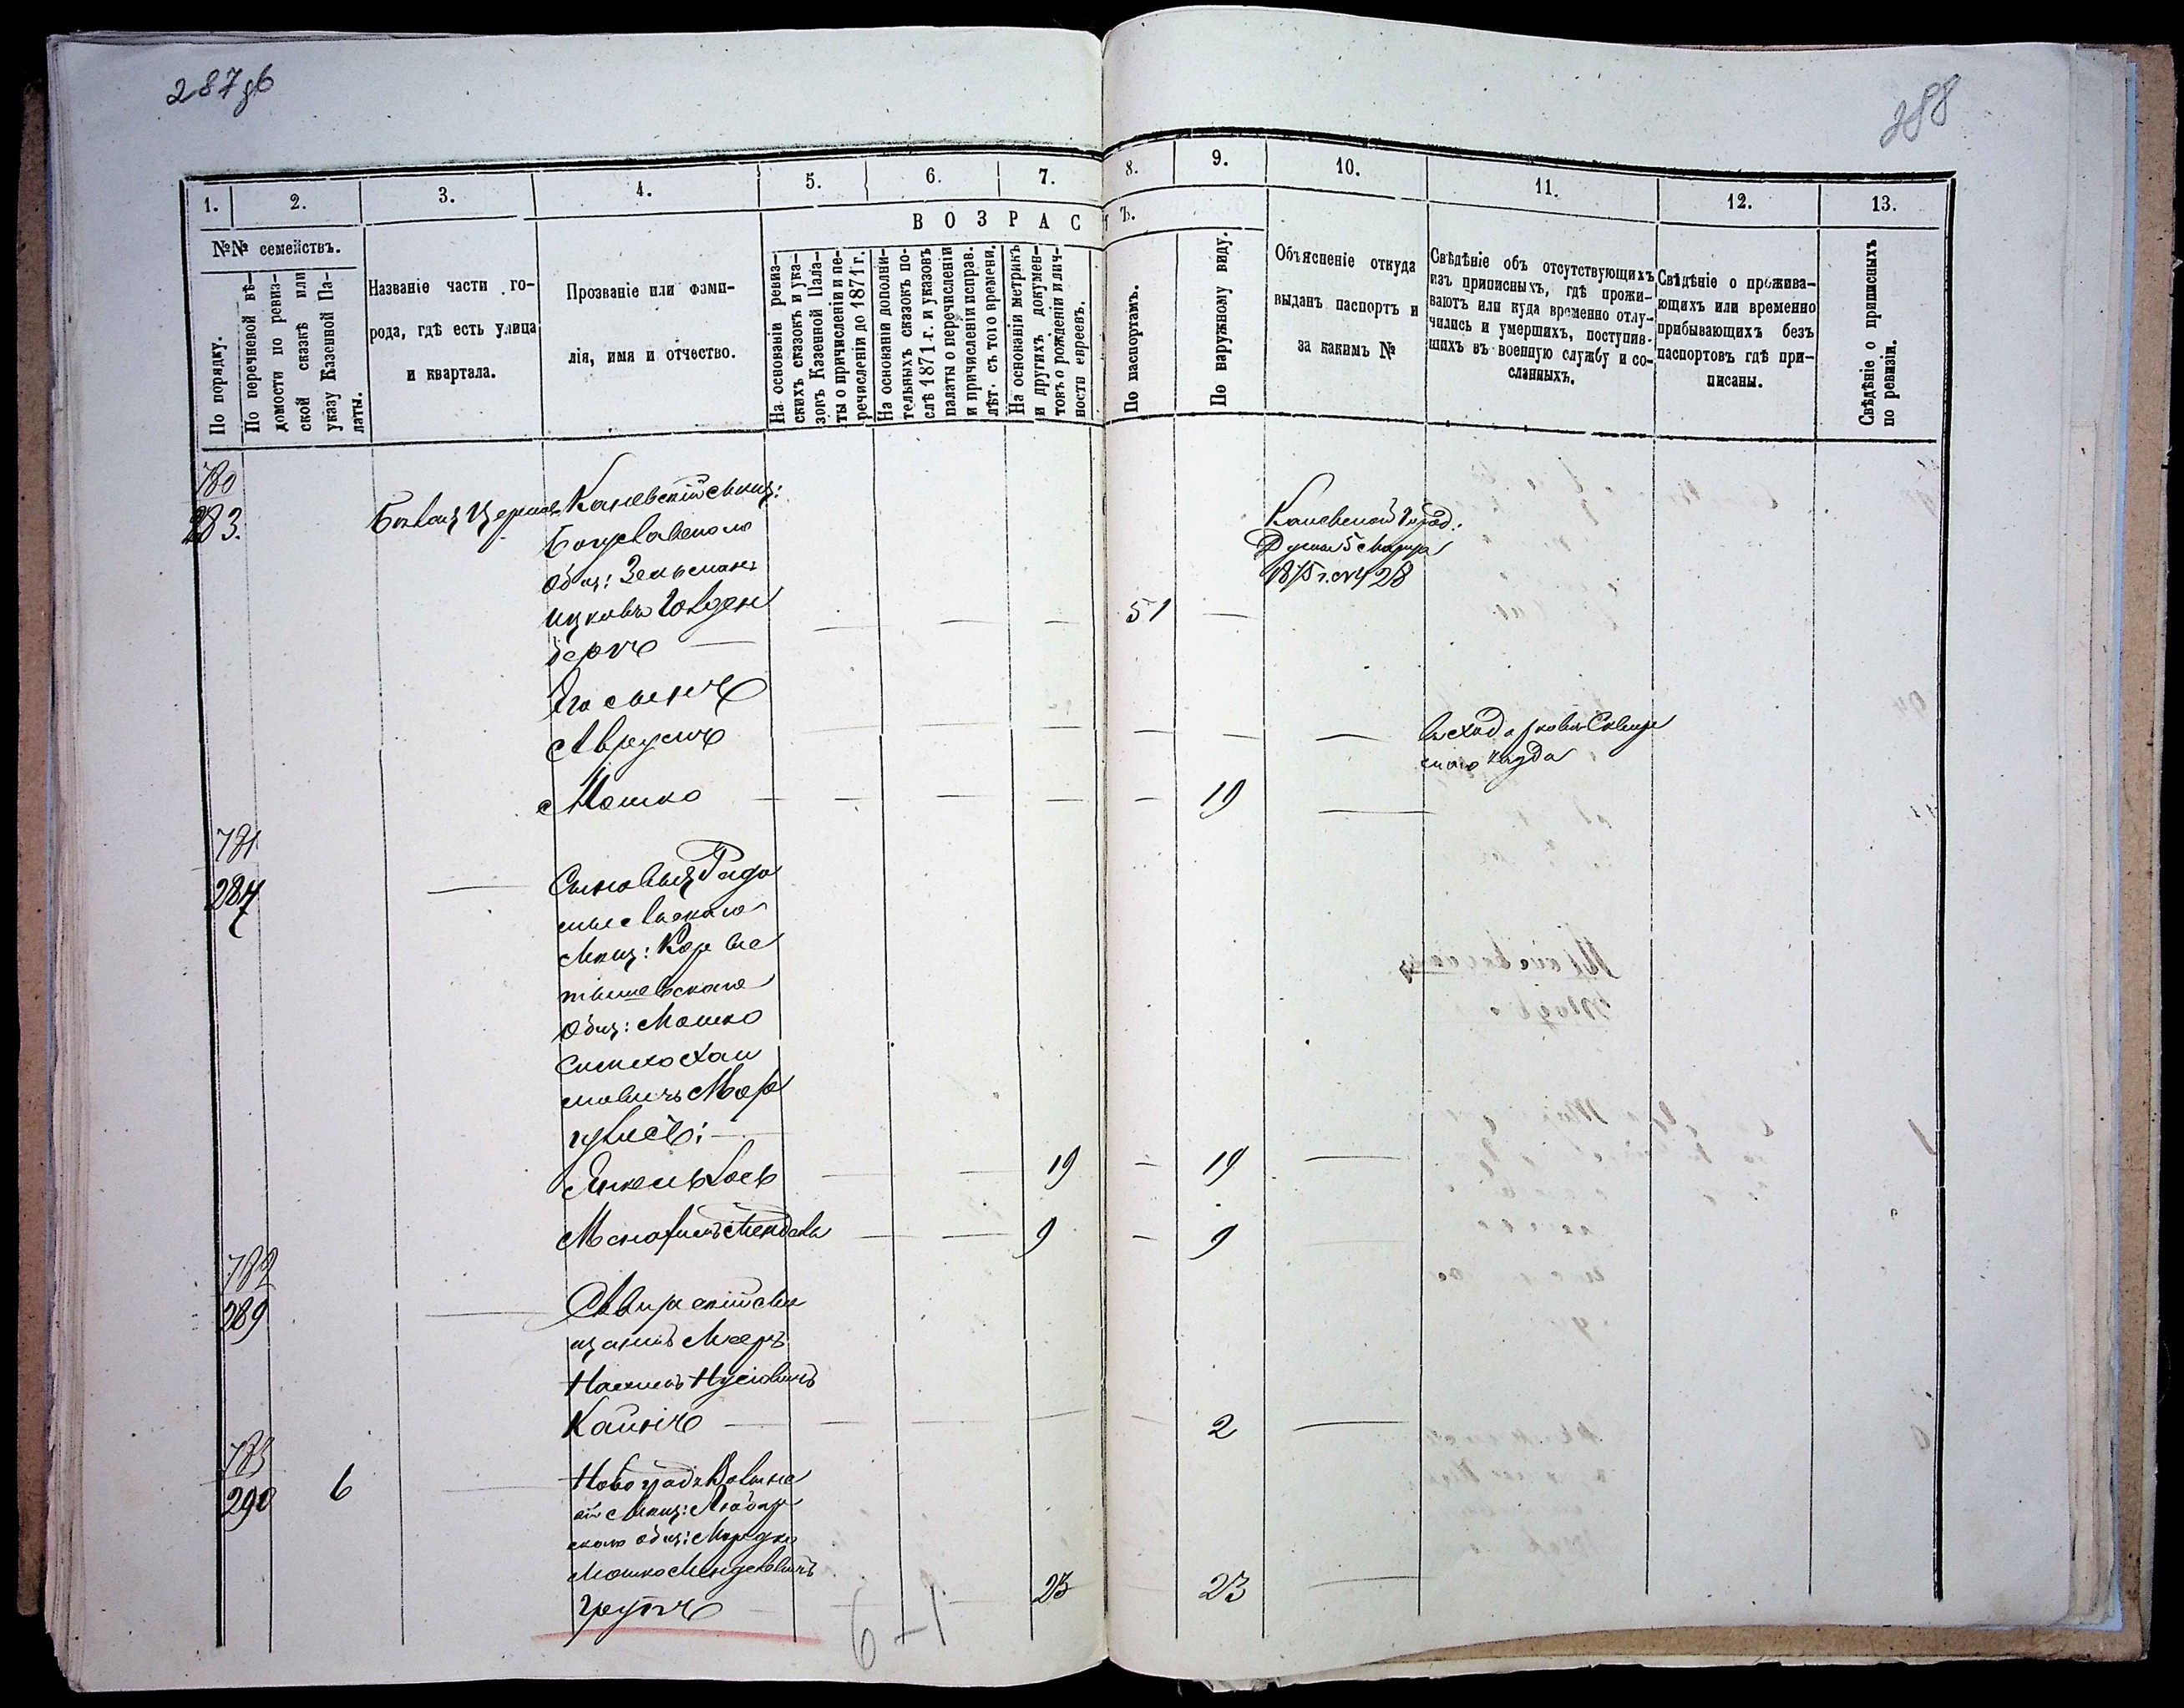 287об
288
1.
2.
3.
4.
5.
6.
7.
8.
9.
10.
11.
12.
13.
№№ семействъ.
По порядку.
По перечневой вѣ-
домости по ревиз-
ской сказкѣ или
указу Казенной Па-
латы.
Названіе части го-
рода, гдѣ есть улица
и квартала.
Прозваніе или фами-
лія, имя и отчество.
ВОЗРАСТЪ.
На основаніи ревиз-
скихъ сказокъ и ука-
зовъ Казенной Пала-
ты о причисленіи и пе-
речисленіи до 1871 г.
На основаніи дополни-
тельныхъ сказокъ по-
слѣ 1871 г. и указовъ
палаты о перечисленіи
и причисленіи исправ.
лѣт. съ того времени.
На основаніи метрикъ
и другихъ докумен-
товъ о рожденіи и лич-
ности евреевъ.
По паспортамъ.
По наружному виду.
Объясненіе откуда
выданъ паспортъ и
за какимъ №
Свѣдѣніе объ отсутствующихъ
изъ приписныхъ, гдѣ прожи-
ваютъ или куда временно отлу-
чились и умершихъ, поступив-
шихъ въ военную службу и со-
сланныхъ.
Свѣдѣніе о прожива-
ющихъ или временно
прибывающихъ безъ
паспортовъ гдѣ при-
писаны.
Свѣдѣніе о приписныхъ
по ревизіи.
780
283. Бѣлая Церковь Каневскій мѣщ:
Богуславскаго
Общ: Зельманъ
Ицковъ Голден
бергъ — 51 —
Каневской Город:
Думы 5 Марта
1875 г. № 428
Его сынъ
Аврумъ
Мошко — 19
Сквир
скаго уѣзда
781
284 Сыновья Радо
мысльскаго
Мѣщ: Кор
тышевскаго
Общ: Мошко
Симхо Хаи
мовичъ Мар
гулисъ:
Янкель Лейб 19 — 19
Менахимъ Мендель 9 — 9
782
289 Сквирскій мѣ
щанинъ Меер
Нахимъ Нусіовичъ
Кайничъ — 2
783
290 6 Новоградъ Волынс
кій Мѣщ: Любар
скаго общ: Мордко
Мошко Менделевичъ
Груп 23 23
6 — 1